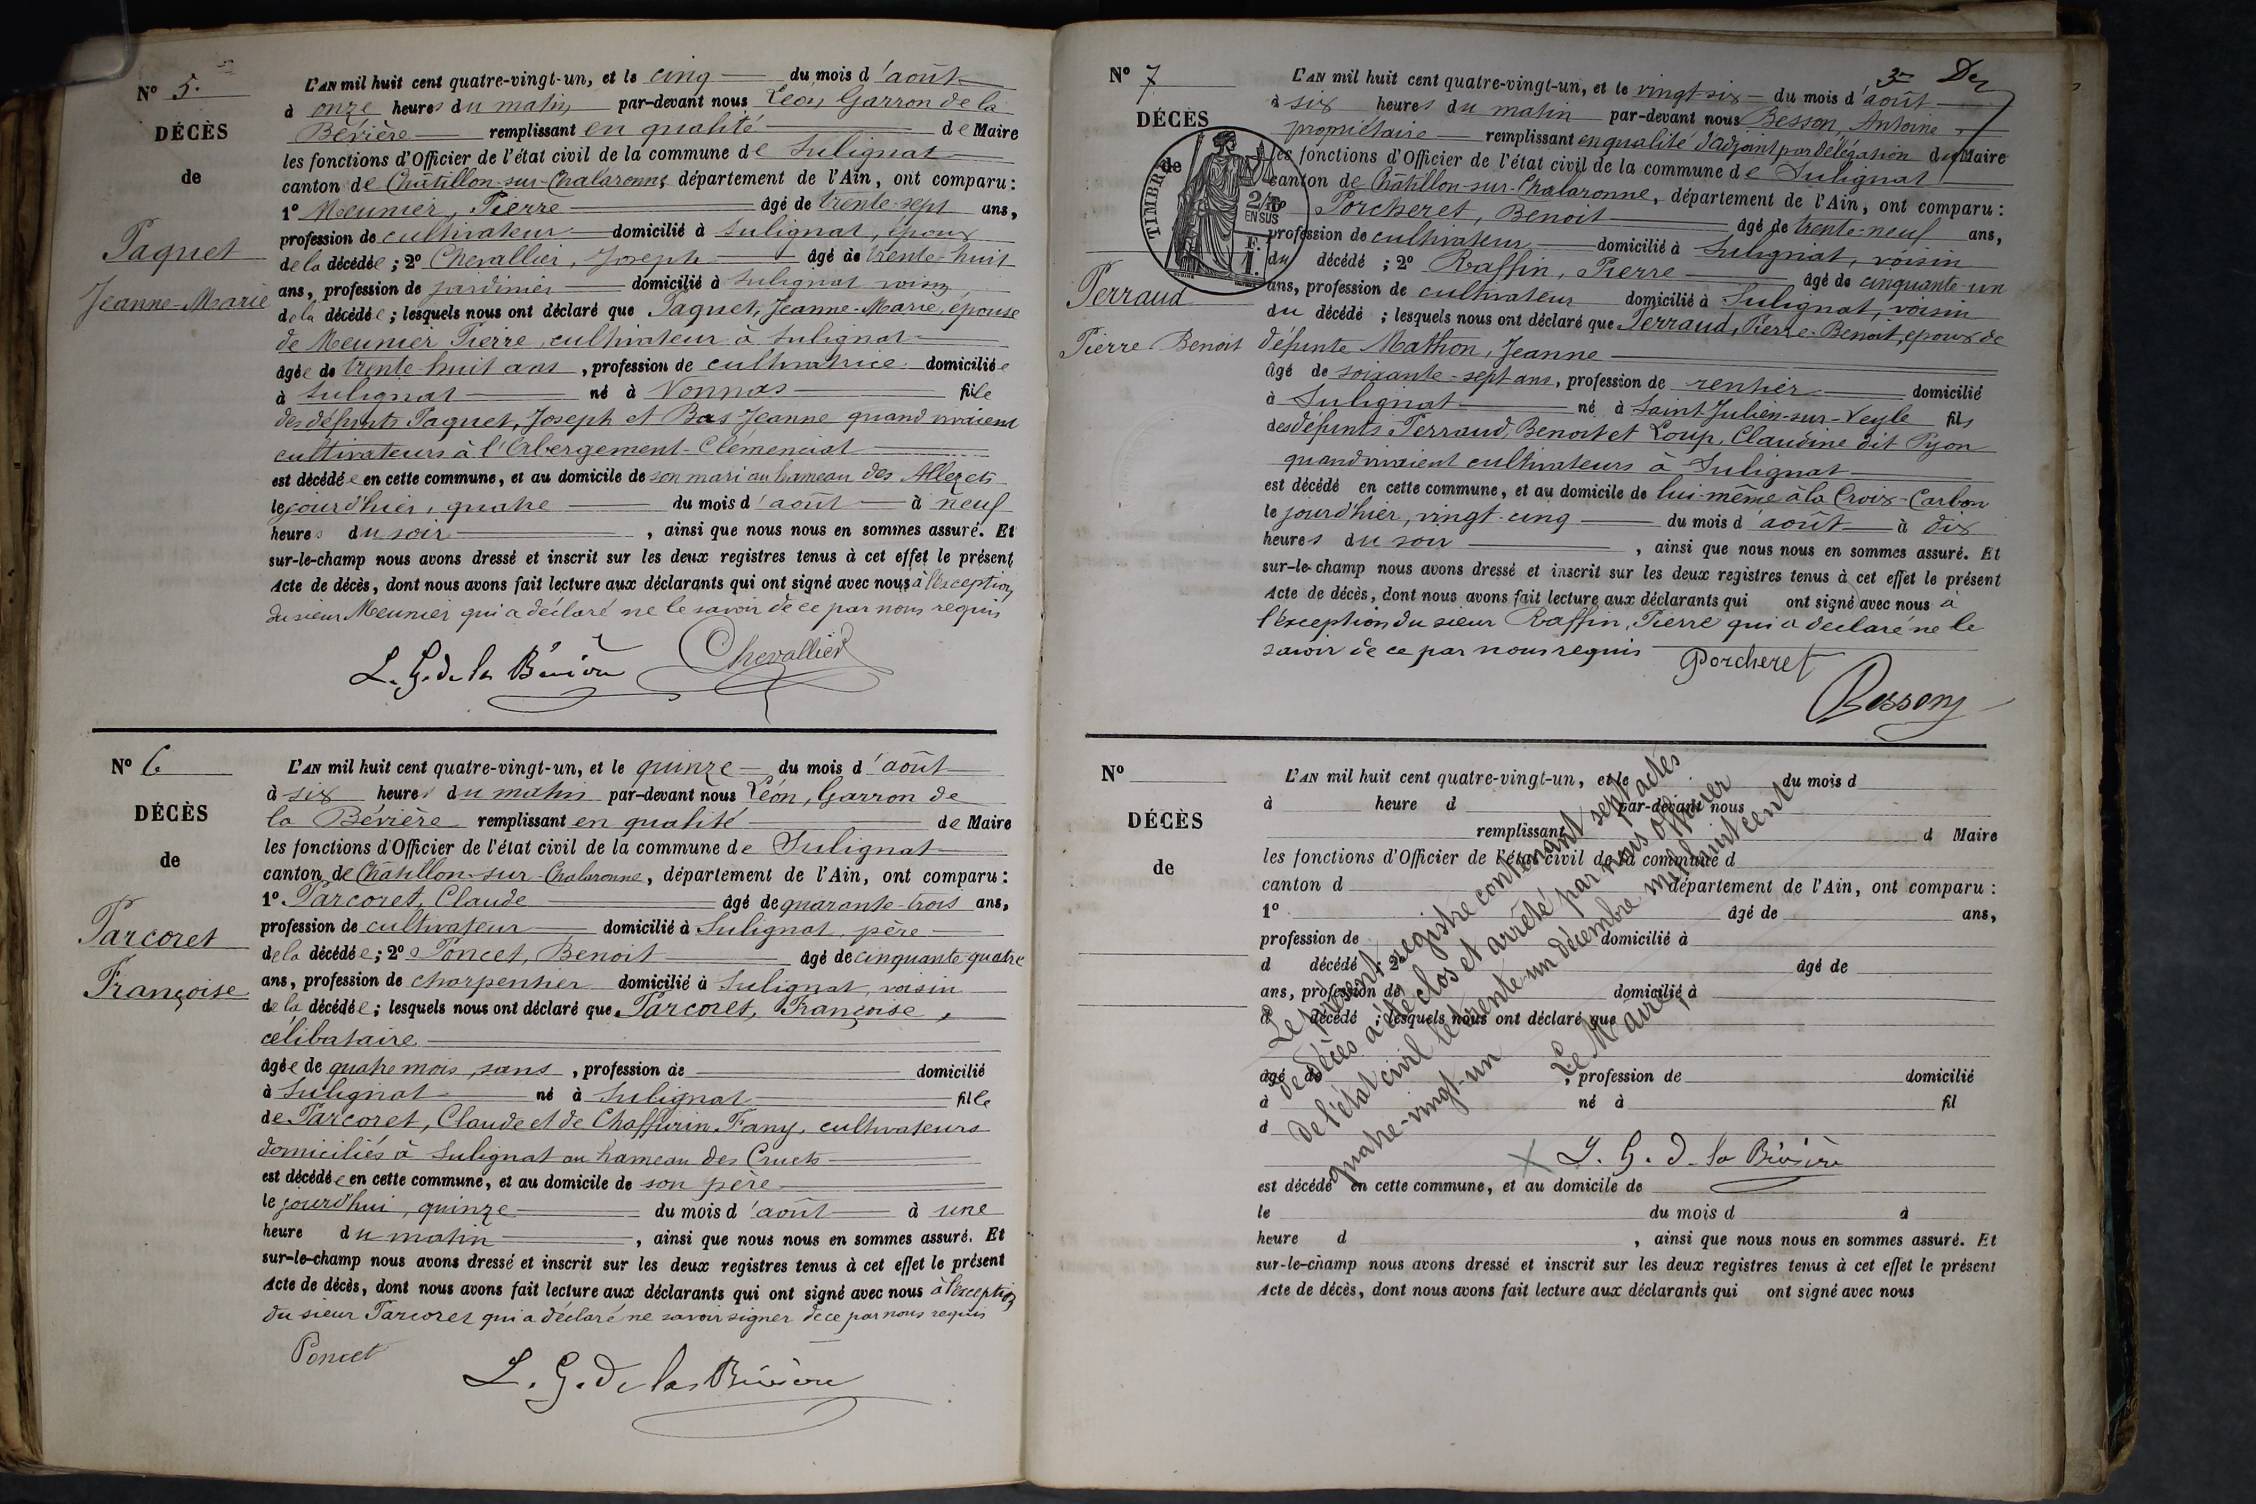 N° 5.
DÉCÈS
de
Paquet
Jeanne-Marie
L'AN mil huit cent quatre-vingt-un, et le cinq du mois d'août
à onze heures du matin par-devant nous Léon Garron de la
Bévière remplissant en qualité de Maire
les fonctions d'Officier de l'état civil de la commune de Sulignat
canton de Châtillon-sur-Chalaronne, département de l'Ain, ont comparu :
1° Meunier, Pierre âgé de trente-sept ans,
profession de cultivateur domicilié à Sulignat, époux
de la décédée ; 2° Chevallier, Joseph âgé de trente-huit
ans, profession de jardinier domicilié à Sulignat voisin
de la décédée ; lesquels nous ont déclaré que Paquet, Jeanne-Marie, épouse
de Meunier Pierre, cultivateur à Sulignat
âgée de trente-huit ans, profession de cultivatrice domiciliée
à Sulignat né à Vonnas fille
des défunts Paquet, Joseph et Bas Jeanne quand vivaient
cultivateurs à l'Abergement-Clémenciat
est décédée en cette commune, et au domicile de son mari au hameau des Allezets
le jourd'hier, quatre du mois d'août à neuf
heures du soir, ainsi que nous nous en sommes assuré. Et
sur-le-champ nous avons dressé et inscrit sur les deux registres tenus à cet effet le présent
Acte de décès, dont nous avons fait lecture aux déclarants qui ont signé avec nous à l'exception
du sieur Meunier qui a déclaré ne le savoir de ce par nous requis
L. G. de la Bévière Chevallier
N° 6
DÉCÈS
de
Parcoret
Françoise
L'AN mil huit cent quatre-vingt-un, et le quinze du mois d'août
à six heures du matin par-devant nous Léon, Garron de
la Bévière remplissant en qualité de Maire
les fonctions d'Officier de l'état civil de la commune de Sulignat
canton de Châtillon-sur-Chalaronne, département de l'Ain, ont comparu :
1° Parcoret, Claude âgé de quarante-trois ans,
profession de cultivateur domicilié à Sulignat, père
de la décédée ; 2° Poncet, Benoit âgé de cinquante-quatre
ans, profession de charpentier domicilié à Sulignat, voisin
de la décédée ; lesquels nous ont déclaré que Parcoret, Françoise,
célibataire
âgée de quatre mois, sans, profession de domicilié
à Sulignat né à Sulignat fille
de Parcoret, Claude et de Chaffurin Fany, cultivateurs
domiciliés à Sulignat au hameau des Cruets
est décédée en cette commune, et au domicile de son père
le jourd'hui, quinze du mois d'août à une
heure du matin, ainsi que nous nous en sommes assuré. Et
sur-le-champ nous avons dressé et inscrit sur les deux registres tenus à cet effet le présent
Acte de décès, dont nous avons fait lecture aux déclarants qui ont signé avec nous à l'exception
du sieur Parcoret qui a déclaré ne savoir signer de ce par nous requis
Poncet
L. G. de la Bévière
3me Der
N° 7
DÉCÈS
de
TIMBRE
2/10
EN SUS
F.
1.
Perraud
Pierre Benoit
L'AN mil huit cent quatre-vingt-un, et le vingt-six du mois d'août
à six heures du matin par-devant nous Besson, Antoine
propriétaire remplissant en qualité d'adjoint par délégation du Maire
les fonctions d'Officier de l'état civil de la commune de Sulignat
canton de Châtillon-sur-Chalaronne, département de l'Ain, ont comparu :
Porcheret, Benoit âgé de trente-neuf ans,
profession de cultivateur domicilié à Sulignat, voisin
du décédé ; 2° Raffin, Pierre âgé de cinquante-un
ans, profession de cultivateur domicilié à Sulignat, voisin
du décédé ; lesquels nous ont déclaré que Perraud, Pierre-Benoit, époux de
défunte Mathon, Jeanne
âgé de soixante-sept ans, profession de rentier domicilié
à Sulignat né à Saint Julien-sur-Veyle fils
des défunts Perraud, Benoit et Loup, Claudine dit Pyon
quand vivaient cultivateurs à Sulignat
est décédé en cette commune, et au domicile de lui-même à la Croix-Carbon
le jourd'hier, vingt-cinq du mois d'août à dix
heures du soir, ainsi que nous nous en sommes assuré. Et
sur-le-champ nous avons dressé et inscrit sur les deux registres tenus à cet effet le présent
Acte de décès, dont nous avons fait lecture aux déclarants qui ont signé avec nous à
l'exception du sieur Raffin, Pierre qui a déclaré ne le
savoir de ce par nous requis
Porcheret
Besson
N°
DÉCÈS
de
L'AN mil huit cent quatre-vingt-un, et le du mois d
à heure d par-devant nous
remplissant d Maire
les fonctions d'Officier de l'état civil de la commune d
canton d département de l'Ain, ont comparu :
1° âgé de ans,
profession de domicilié à
d décédé ; 2° âgé de
ans, profession de domicilié à
d décédé ; lesquels nous ont déclaré que
âgé de , profession de domicilié
à né à fil
d
est décédé en cette commune, et au domicile de
le du mois d à
heure d , ainsi que nous nous en sommes assuré. Et
sur-le-champ nous avons dressé et inscrit sur les deux registres tenus à cet effet le présent
Acte de décès, dont nous avons fait lecture aux déclarants qui ont signé avec nous
Le présent registre contenant sept actes
de décès a été clos et arrêté par nous officier
de l'état civil le trente-un décembre mil huit cent
quatre-vingt-un
Le Maire,
L. G. de la Bévière